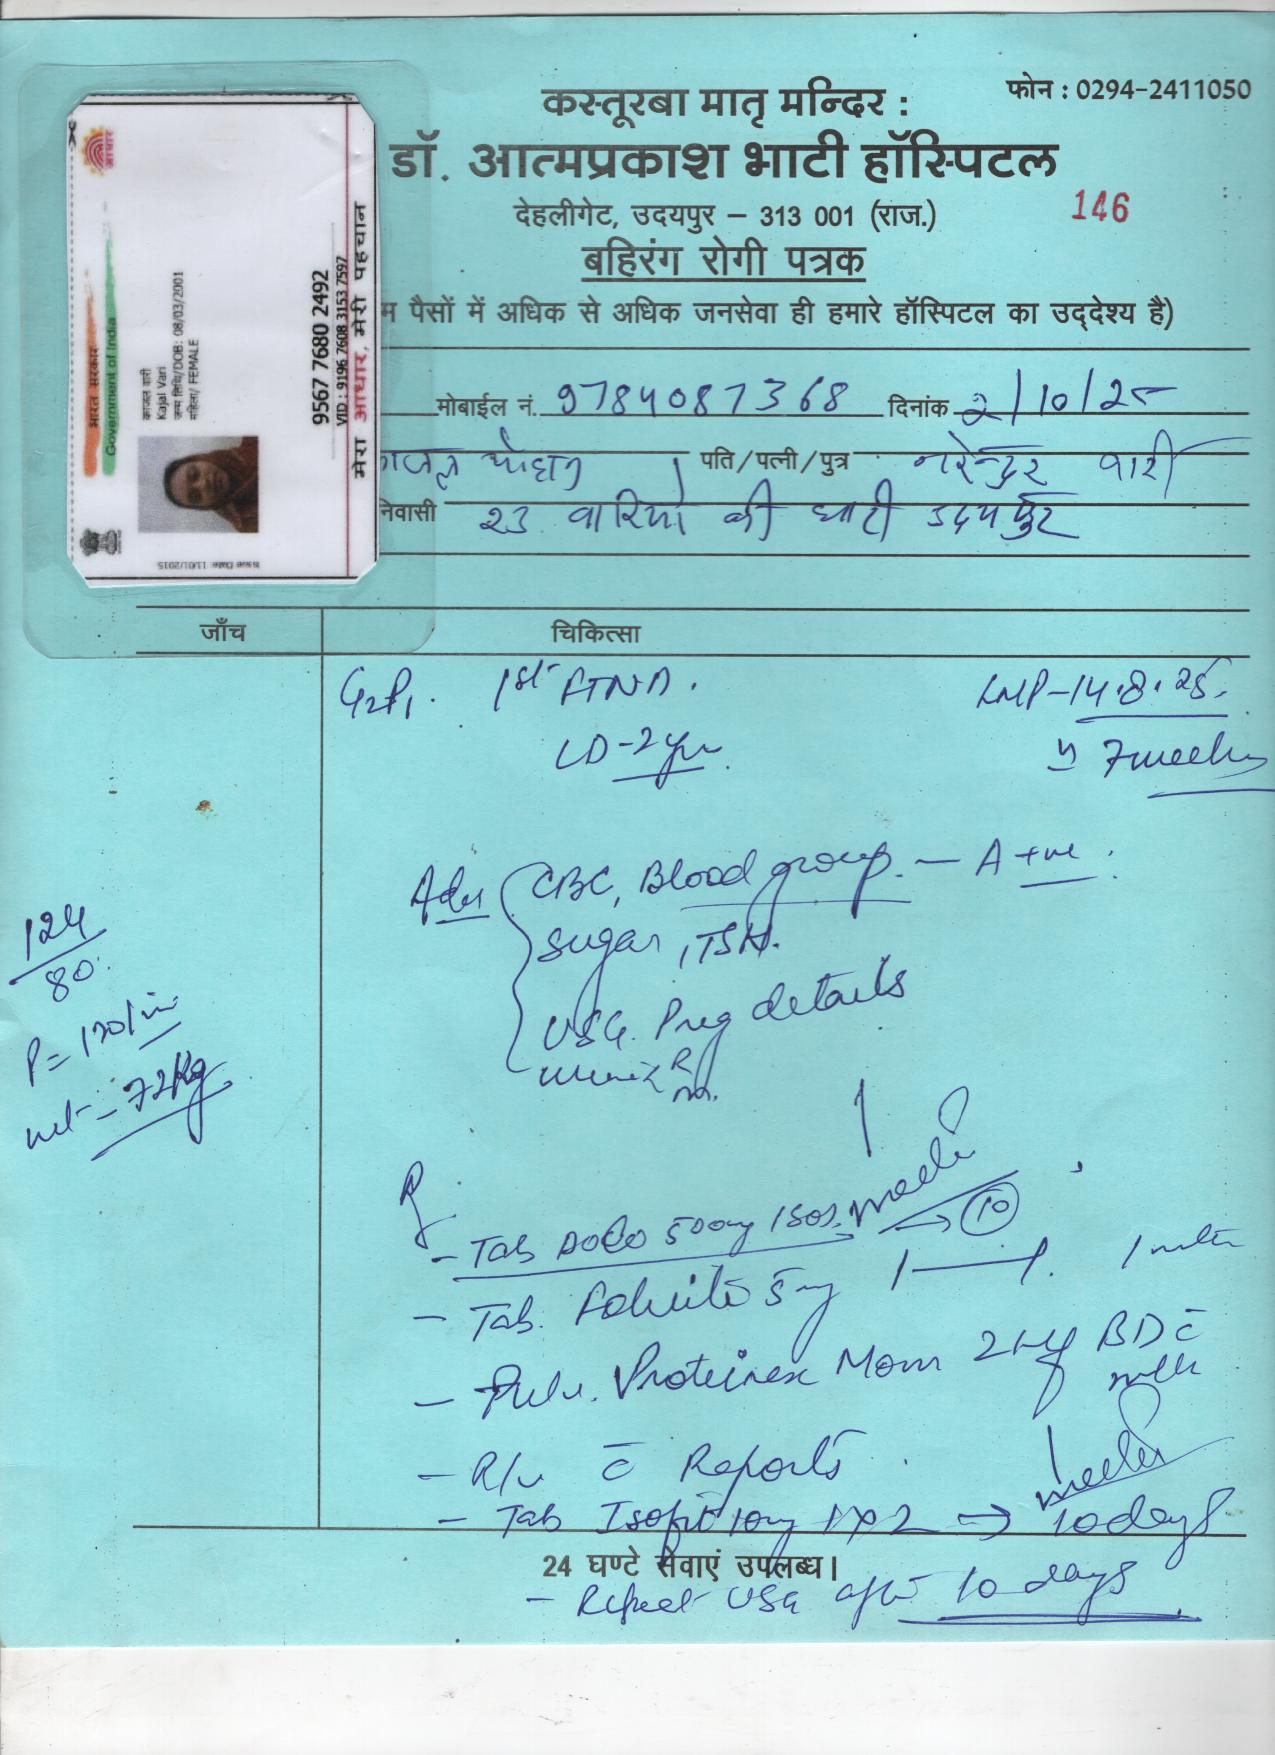 फोन : 0294-2411050
कस्तूरबा मातृ मन्दिर :
डॉ. आत्मप्रकाश भाटी हॉस्पिटल
देहलीगेट, उदयपुर – 313 001 (राज.)
146
बहिरंग रोगी पत्रक
म पैसों में अधिक से अधिक जनसेवा ही हमारे हॉस्पिटल का उद्देश्य है)
आधार
भारत सरकार
Government of India
काजल वारी
Kajal Vari
जन्म तिथि/DOB: 08/03/2001
महिला/ FEMALE
9567 7680 2492
VID : 9196 7608 3153 7597
मेरा आधार, मेरी पहचान
Issue Date: 11/01/2015
मोबाईल नं. 9784087368 दिनांक 2/10/25
पति/पत्नी/पुत्र नरेन्द्र वारी
निवासी 23 वारियो की घाटी उदयपुर
जाँच चिकित्सा
G2P1. 1st FTND. LMP-14.8.25.
LD-2yr. 7 weeks
Adv CBC, Blood group. – A +ve.
Sugar, TSH.
USG. Preg details
Urine R/m.
124/80
P= 120/min
wt – 72kg
R
- Tab 500mg 1SOS → 10
- Tab. 5mg
- Pulv. Proteinex Mom BD c̄ milk
- R/v c̄ Reports
- Tab 10mg 1x2 → 10 days
24 घण्टे सेवाएं उपलब्ध।
- Repeat USG after 10 days